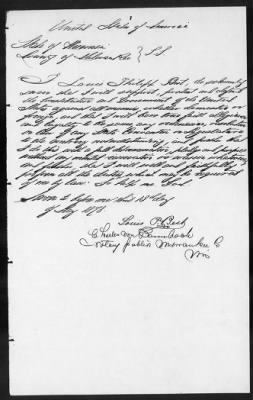 United States of America
State of Wisconsin
County of Milwaukee } SS
I Louis Philipp Best, do solemnly
swear that I will support, protect and defend
the Constitution and Government of the United
States against all enemies, whether domestic or
foreign, and that I will bear true faith allegiance
and loyalty to the same, any ordinance, resolution
or law of any State Convention or Legislature
to the contrary notwithstanding, and further that I
do this with a full determination, pledge and purpose
without any mental reservation or evasion whatsoever
and further that I will well and faithfully
perform all the duties which may be required
of me by law. So help me God.
Sworn to before me this day
of May 1873
Louis P. Best
Charles
Notary public Milwaukee Co
Wis